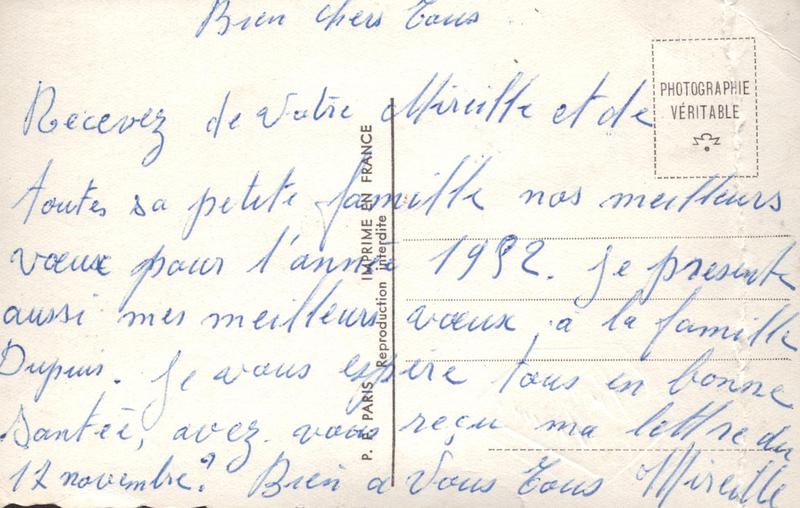 Bien chers Tous
Recevez de votre Mireille et de
toutes sa petite famille nos meilleurs
vœux pour l'année 1952. Je presente
aussi mes meilleurs vœux à la famille
Dupuis. Je vous espère tous en bonne
Santée, avez vous reçu ma lettre du
17 novembre? Bien a Vous Tous Mireille
PHOTOGRAPHIE
VÉRITABLE
P. F. PARIS IMPRIME EN FRANCE
Reproduction interdite